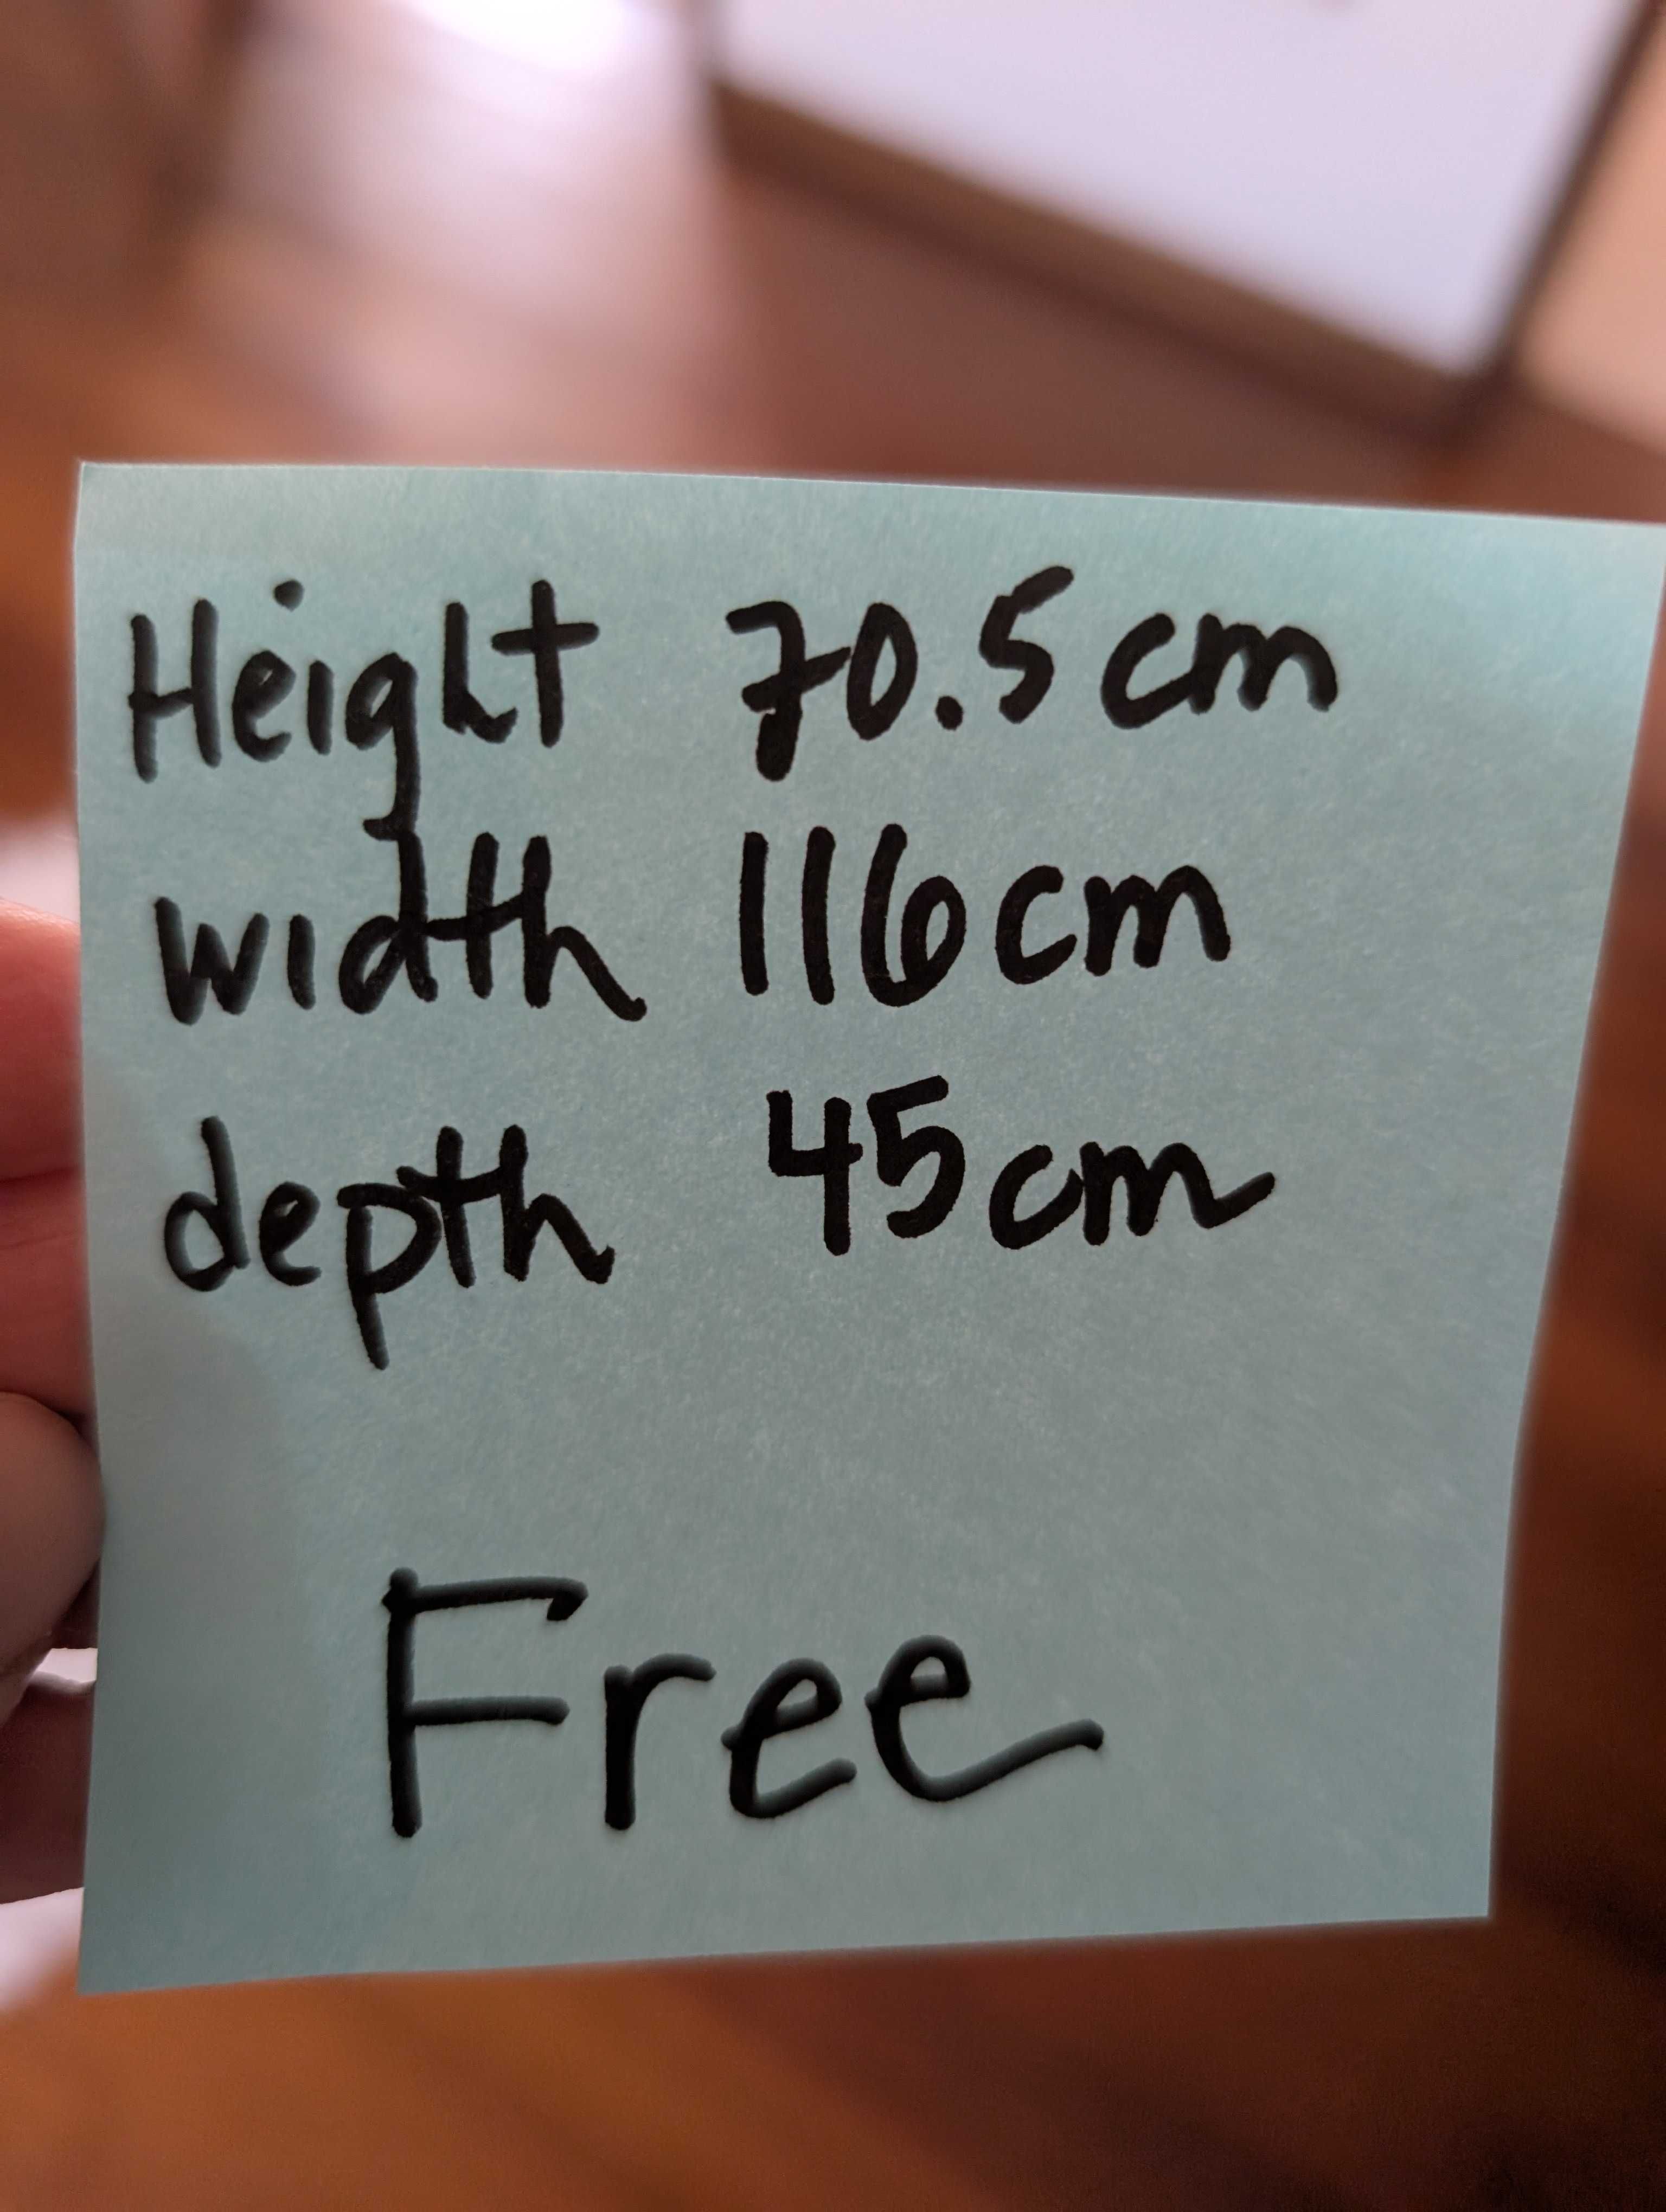 Height 70.5cm
width 116cm
depth 45cm
Free